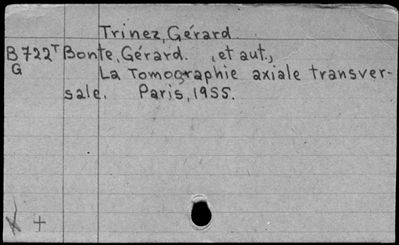 Trinez, Gérard.
B 722 T Bonte, Gérard. , et aut.,
G La Tomographie axiale transver-
sale. Paris, 1955.
+